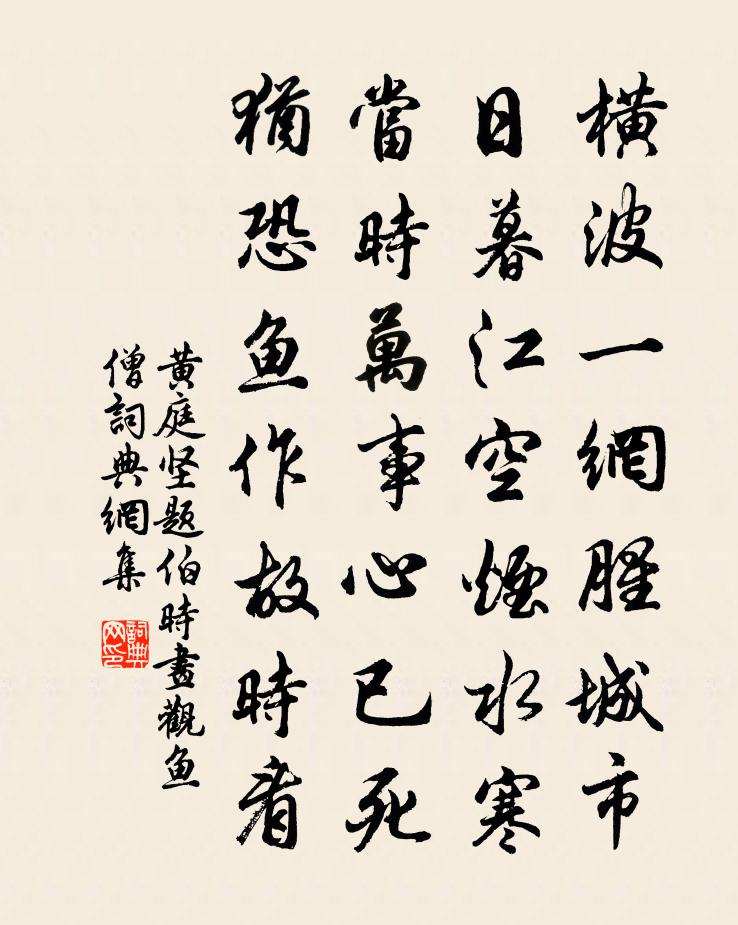 橫波一網腥城市
日暮江空煙水寒
當時萬事心已死
猶恐鱼作故時看
黄庭坚题伯時畫觀鱼
僧詞典網集
詞典网印